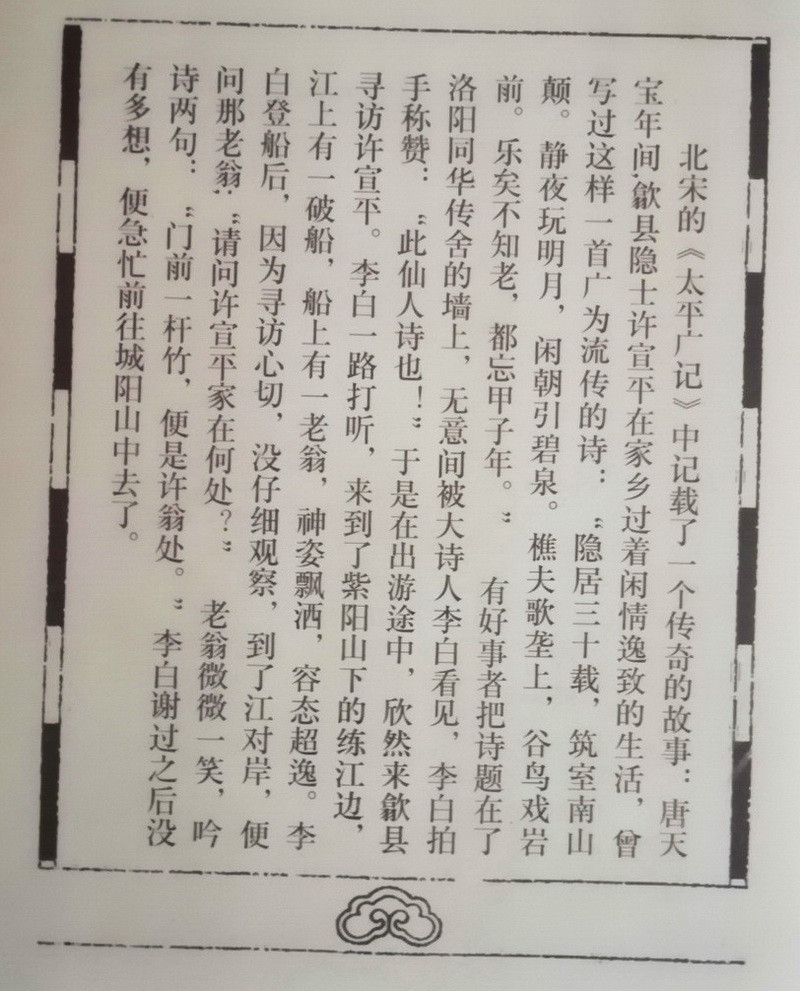 北宋的《太平广记》中记载了一个传奇的故事：唐天
宝年间，歙县隐士许宣平在家乡过着闲情逸致的生活，曾
写过这样一首广为流传的诗：“隐居三十载，筑室南山
颠。静夜玩明月，闲朝引碧泉。樵夫歌垄上，谷鸟戏岩
前。乐矣不知老，都忘甲子年。”有好事者把诗题在了
洛阳同华传舍的墙上，无意间被大诗人李白看见，李白拍
手称赞：“此仙人诗也！”于是在出游途中，欣然来歙县
寻访许宣平。李白一路打听，来到了紫阳山下的练江边，
江上有一破船，船上有一老翁，神姿飘洒，容态超逸。李
白登船后，因为寻访心切，没仔细观察，到了江对岸，便
问那老翁：“请问许宣平家在何处？”老翁微微一笑，吟
诗两句：“门前一杆竹，便是许翁处。”李白谢过之后没
有多想，便急忙前往城阳山中去了。